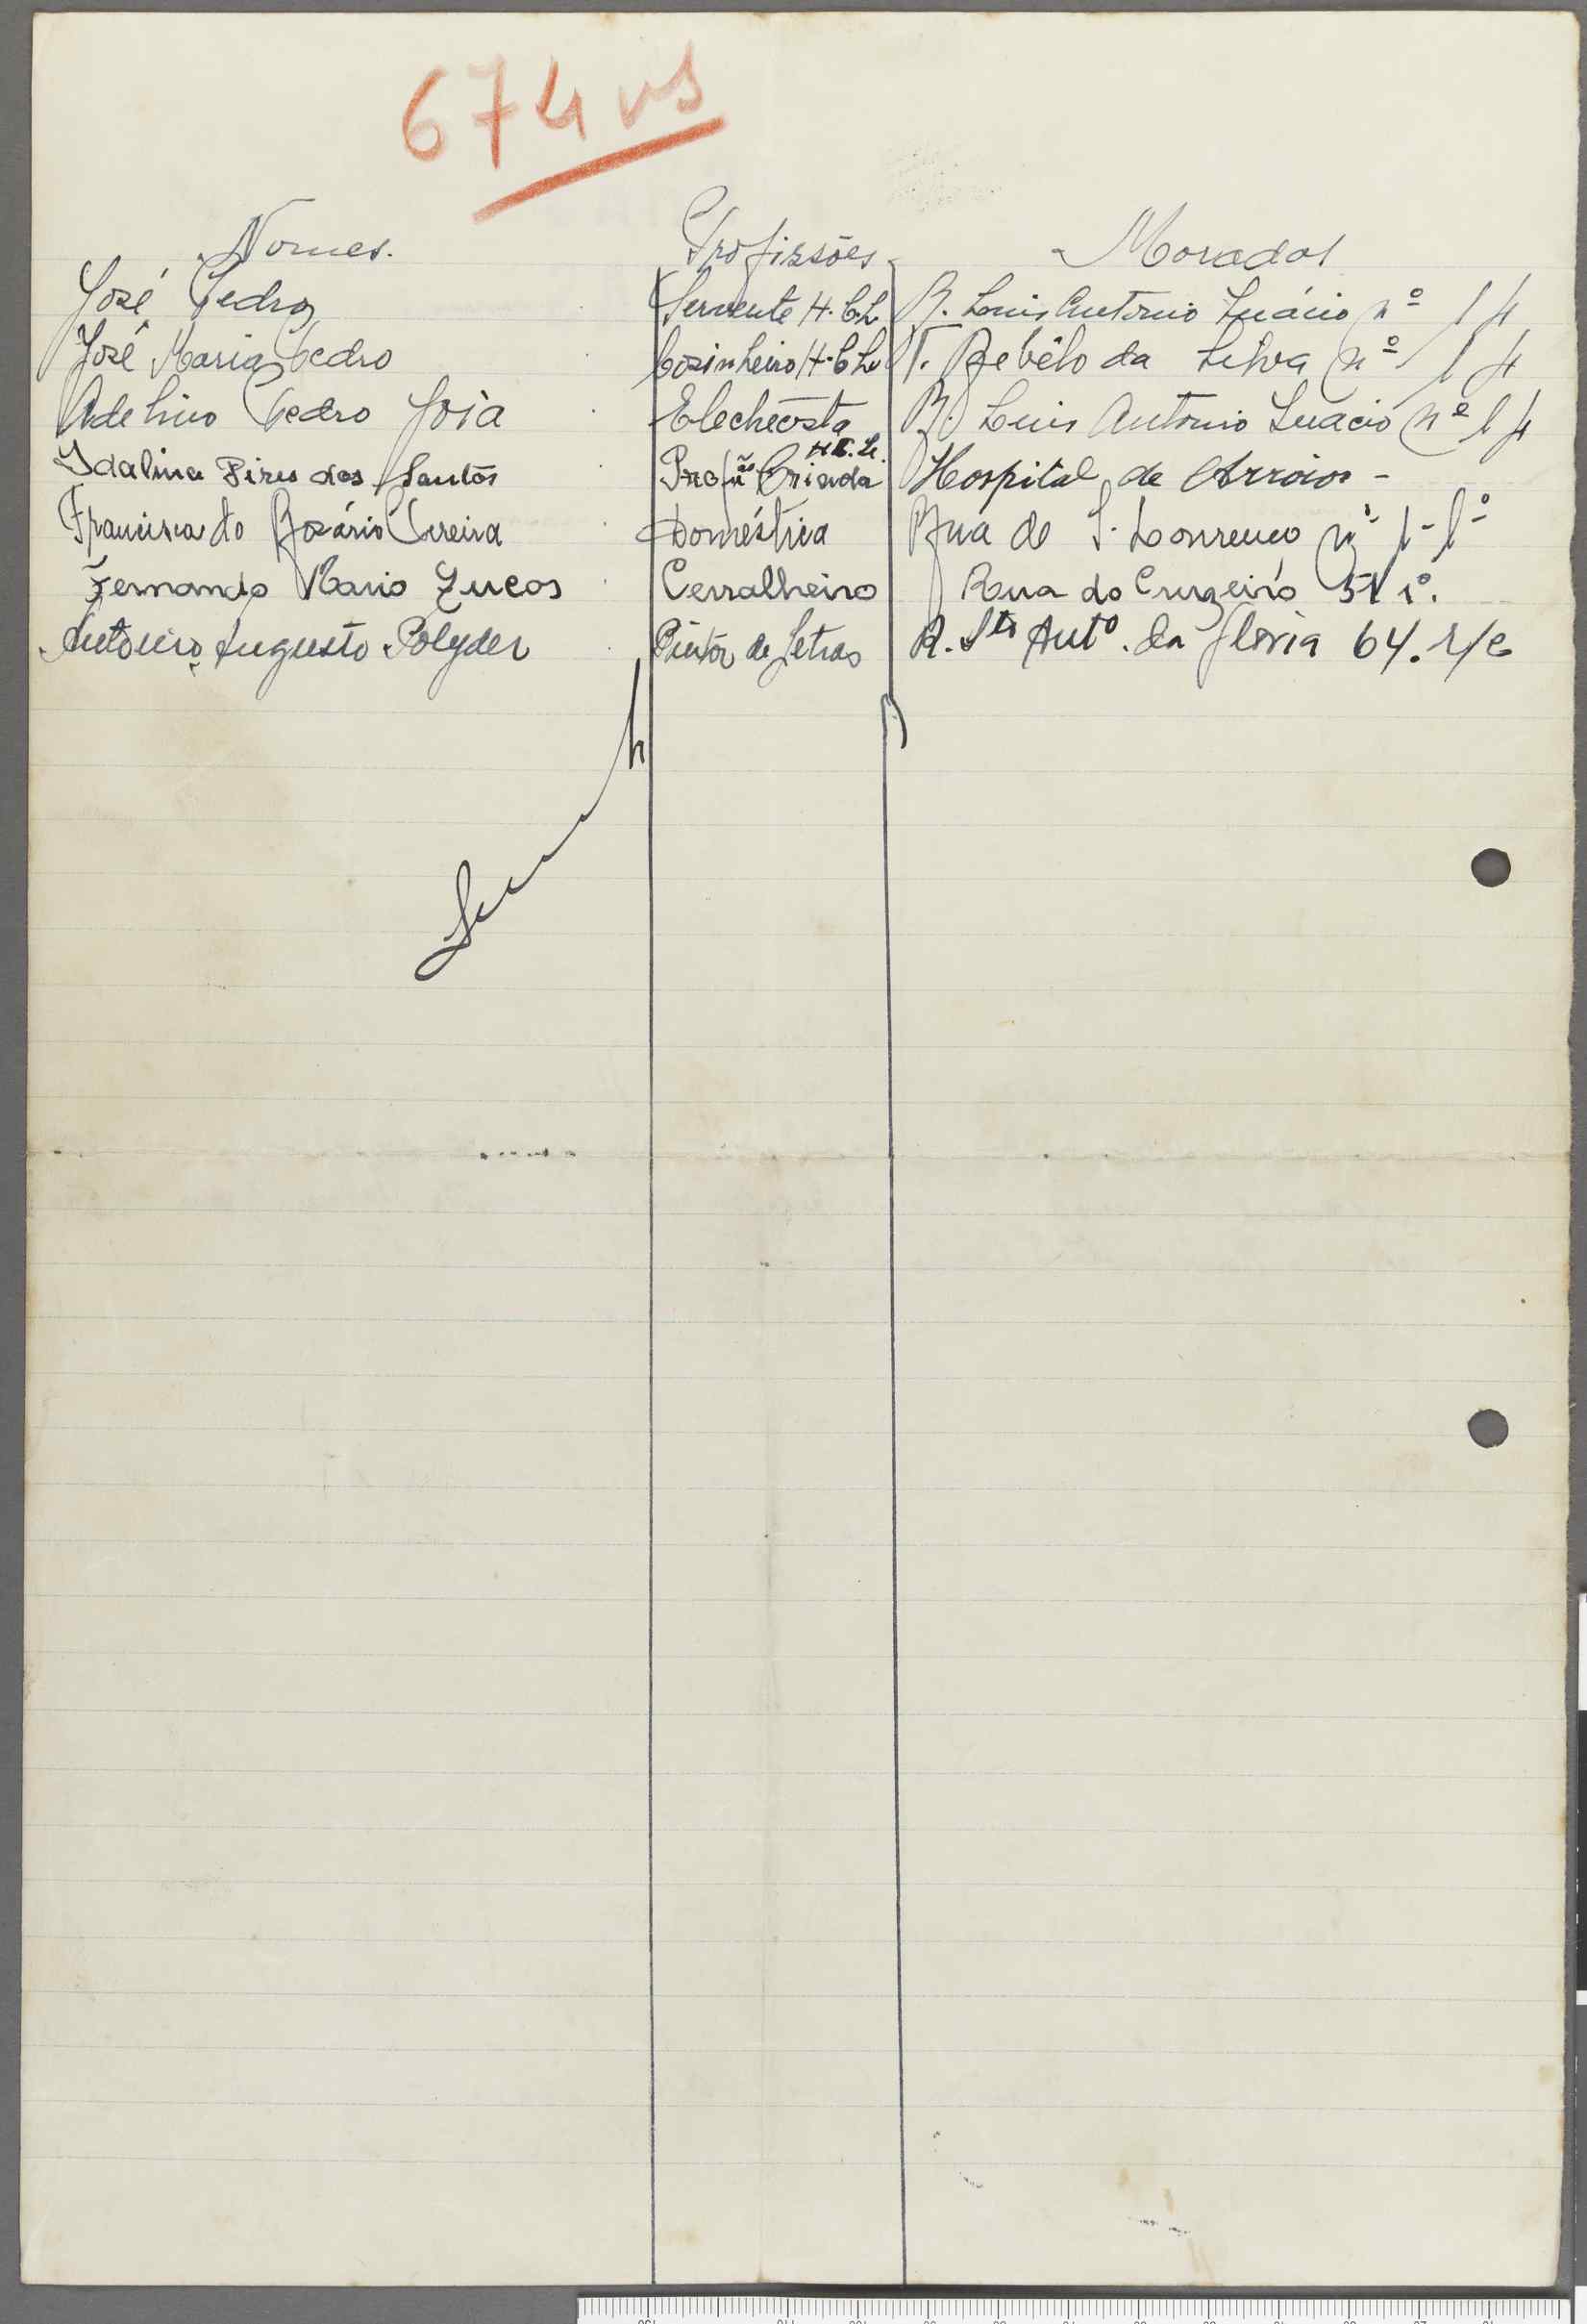 674 vs
Nomes. Profissões Moradas
José Pedro Servente H.C.L R. Luis Antonio Inácio nº 14
José Maria Pedro Cosinheiro H.C.L T. Rebêlo da Silva nº 14
Adelino Pedro Joia R. Luis Antonio Inacio nº 14
Idalina Pires dos Santos Criada H.C.L. Hospital de Arroios -
Francisca do Rosário Pereira Doméstica Rua de S. Lourenço nº 1-1º
Fernando Mario Lucas Cerralheiro Rua do Cruzeiro 51 1º.
Antonio Augusto Polyder Pintor de Letras R. Stº Antº. da Gloria 64. r/c